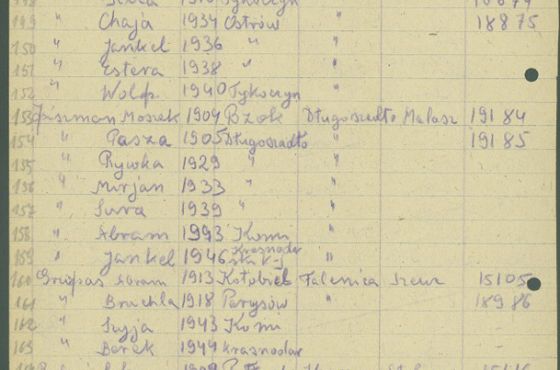 149 " Chaja 1934 Ostrów " 18875
150 " Jankel 1936 " "
151 " Estera 1938 " "
152 " Wolf. 1940 Tykoczyn "
153 Fiszman Moszek 1904 Bzok Długosiodło Malarz 19184
154 " Pasza 1905 Długosiodło " 19185
155 " Rywka 1929 " "
156 " Mirjan 1933 " "
157 " Sura 1939 " "
158 " Abram 1943 Komi "
159 " Jankel 1946 Krasnodar "
160 Abram 1913 Kołobiel Falenica Szewc 15105
161 " Bruchla 1918 Parysów " 18986
162 " Szyja 1943 Komi -
163 " Berek 1944 Krasnodar -